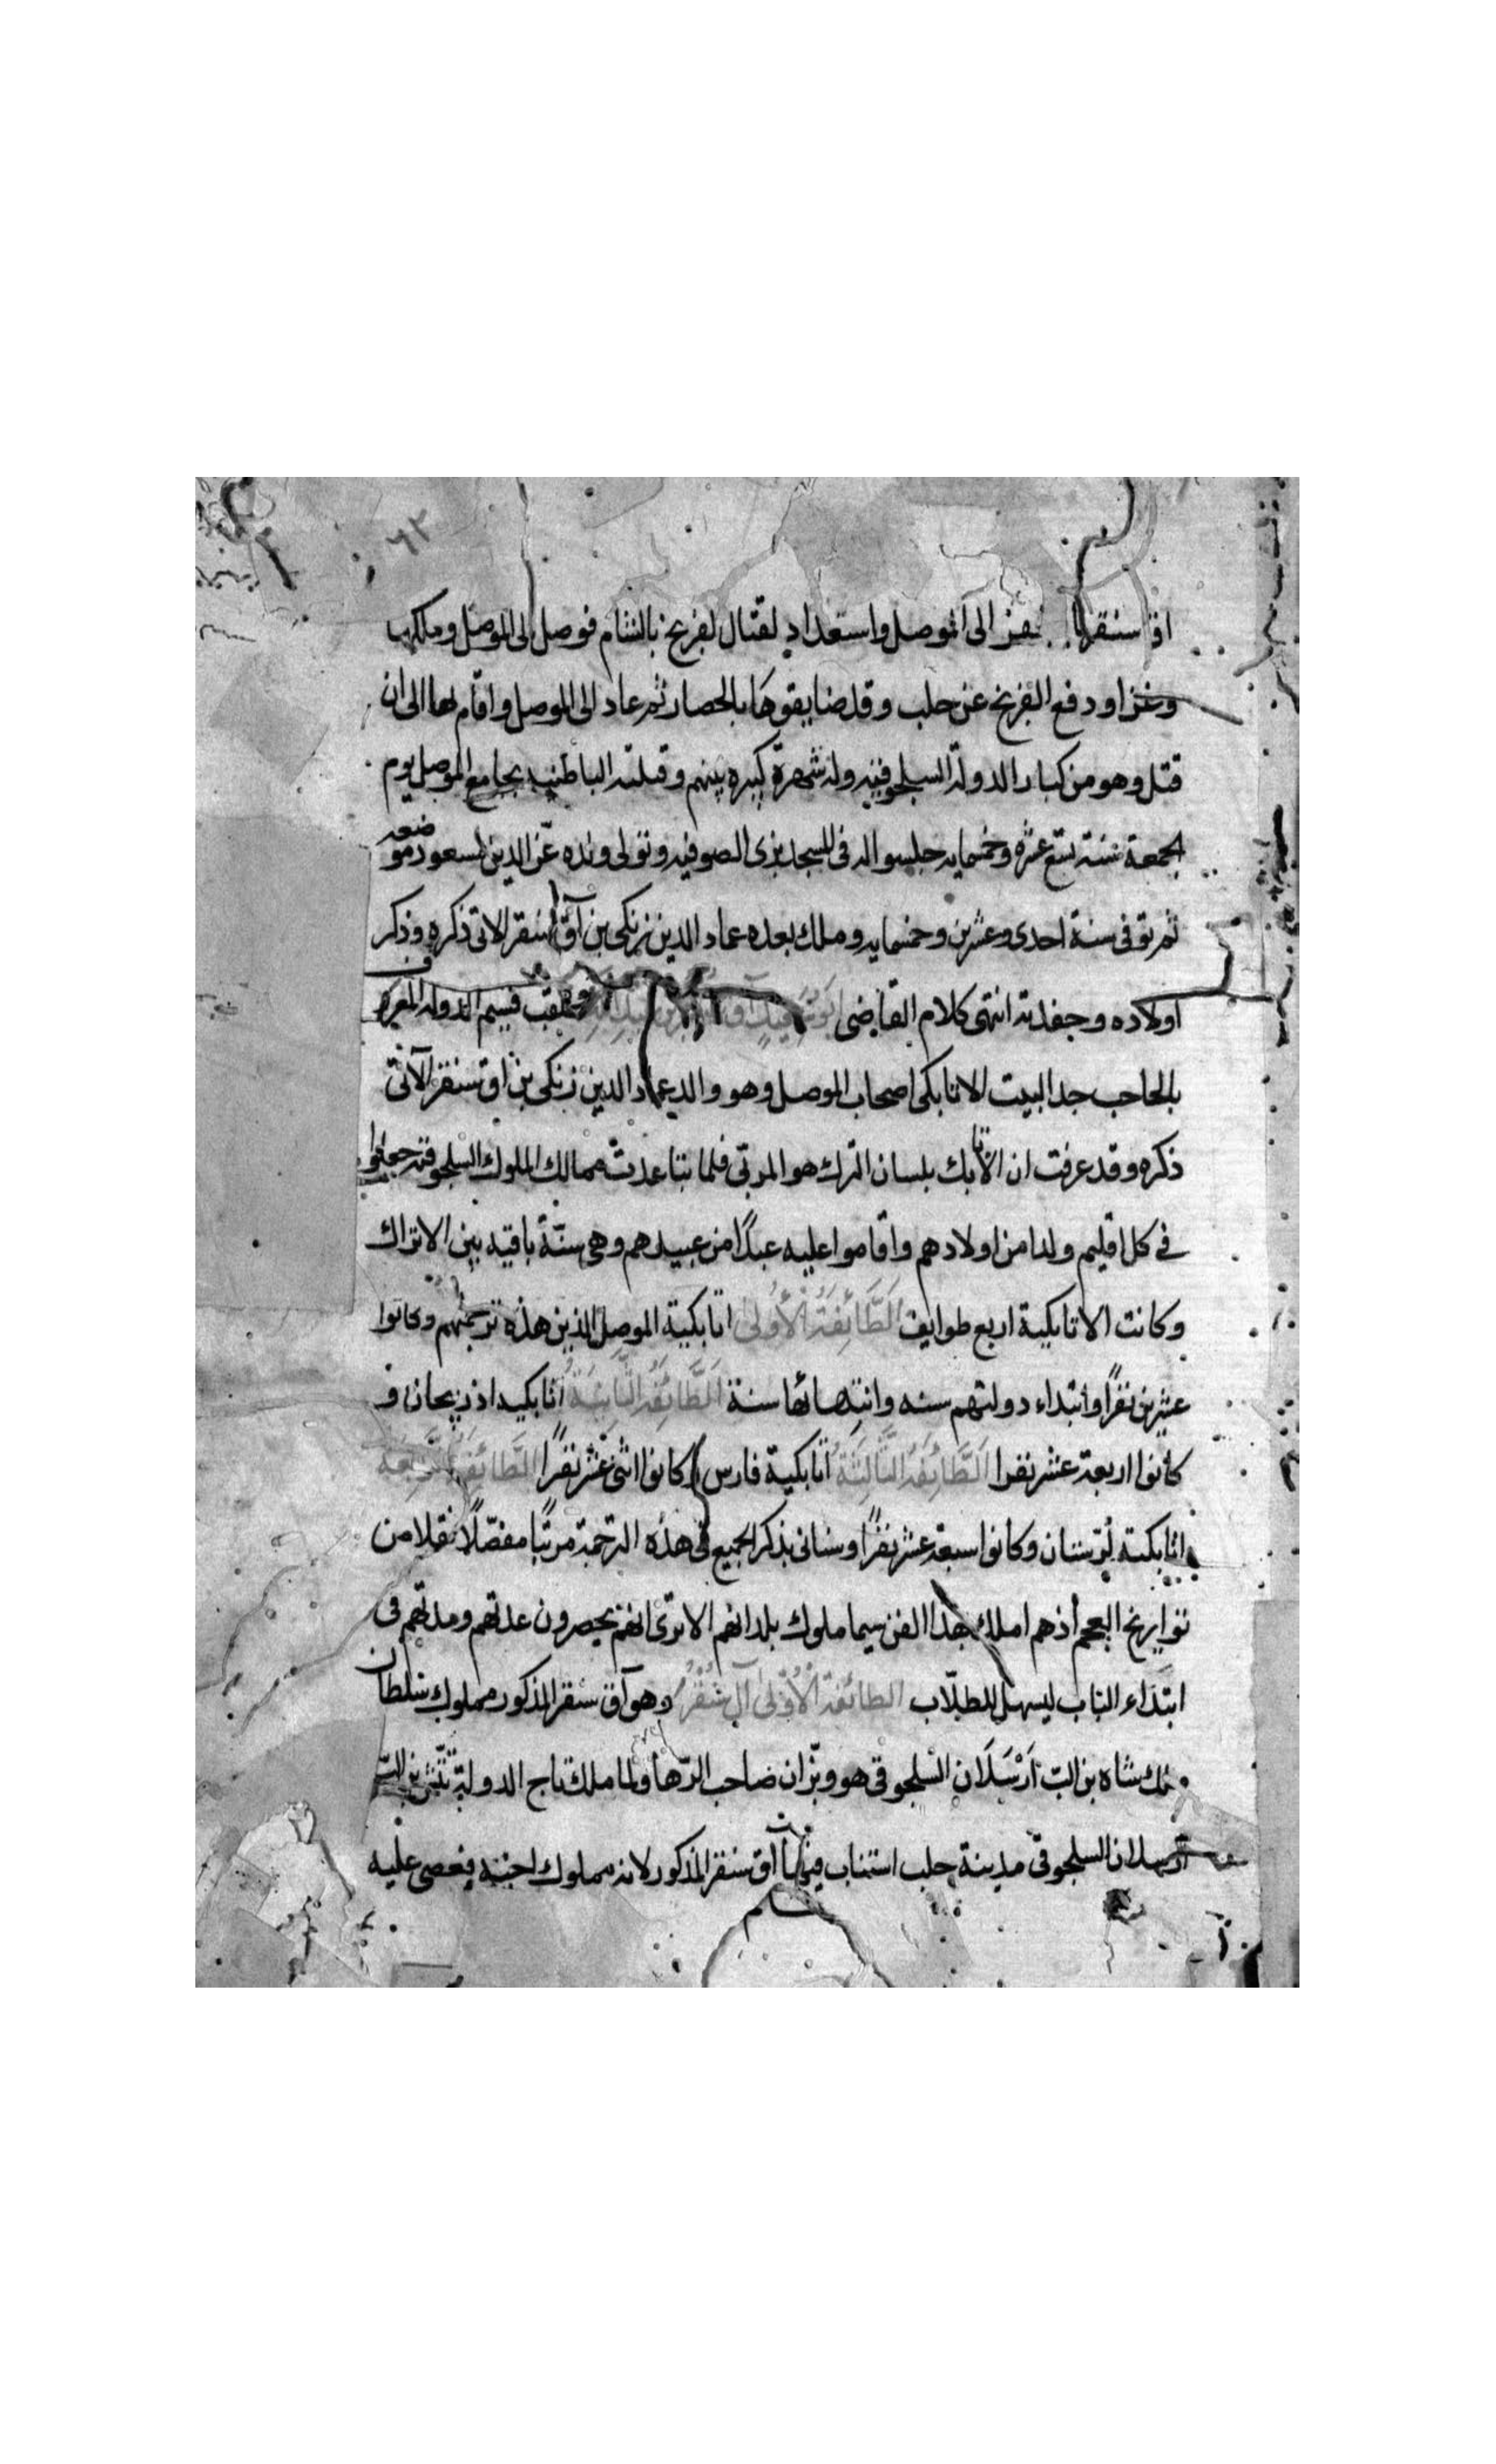 ٦٢
اق سنقر الى الموصل واستعداد لقتال لفرنج بالشام فوصل الى الموصل وملكها
وغزا ودفع الفرنج عن حلب وقد ضايقوها بالحصار ثم عاد الى الموصل واقام بها الى ان
قتل وهو من كبار الدولة السلجوقية وله شهرة كبيره بينهم وقتلته الباطنيه بجامع الموصل يوم
الجمعة سنة تسع عشره وخمسمايه جلسوا له فى المسجد بزى الصوفيه وتولى ولده عز الدين مسعود موضعه
ثم توفى سنة احدى وعشرين وخمسمايه وملك بعده عماد الدين زنكى بن آق سنقر الاتى ذكره وذكر
اولاده وحفدته انتهى كلام القاضى ابو سعيد آق سنقر بن عبد الله وملقب قسيم الدوله المعروف
بالحاجب جد البيت الاتابكى اصحاب الموصل وهو والد عماد الدين زنكى بن اق سنقر الآتى
ذكره وقد عرفت ان الاتابك بلسان الترك هو المربّى فلما تباعدت ممالك الملوك السلجوقيه جعلوا
فى كل اقليم ولدا من اولادهم واقاموا عليه عبدًا من عبيدهم وهى سنّة باقيه بين الاتراك
وكانت الاتابكية اربع طوايف الطَّائِفَةُ الأُولى اتابكية الموصل الذين هذه ترجمتهم وكانوا
عشرين نفرًا وابتداء دولتهم سنه وانتهائها سنة الطَّائِفَة الثَّانِيَةُ اتابكيه اذربيجان و
كانوا اربعة عشر نفرا الطَّائِفَةُ الثَّالِثَةُ اتابكية فارس كانوا اثنى عشر نفرًا الطَّائِفَةُ الرَّابِعَة
اتابكية لرستان وكانوا سبعة عشر نفرًا وسناتى بذكر الجميع فى هذه الترجمة مرتبًا مفصّلًا نقلا من
تواريخ العجم اذهم املك بهذا الفن سيما ملوك بلدانهم الا ترى انهم يحصرون عدتهم ومدتهم فى
ابتداء الباب ليسهل للطلّاب الطائفة الأولى آل سُنْقُر وهو آق سنقر المذكور مملوك سلطان
ملك شاه بن الب اَرْسَلَان السلجوقى هو وبزّان صاحب الرّها ولما ملك تاج الدولة تتش بن الب
ارسلان السلجوقى مدينة حلب استناب فيها آق سنقر المذكور لانه مملوك اخيه فعصى عليه